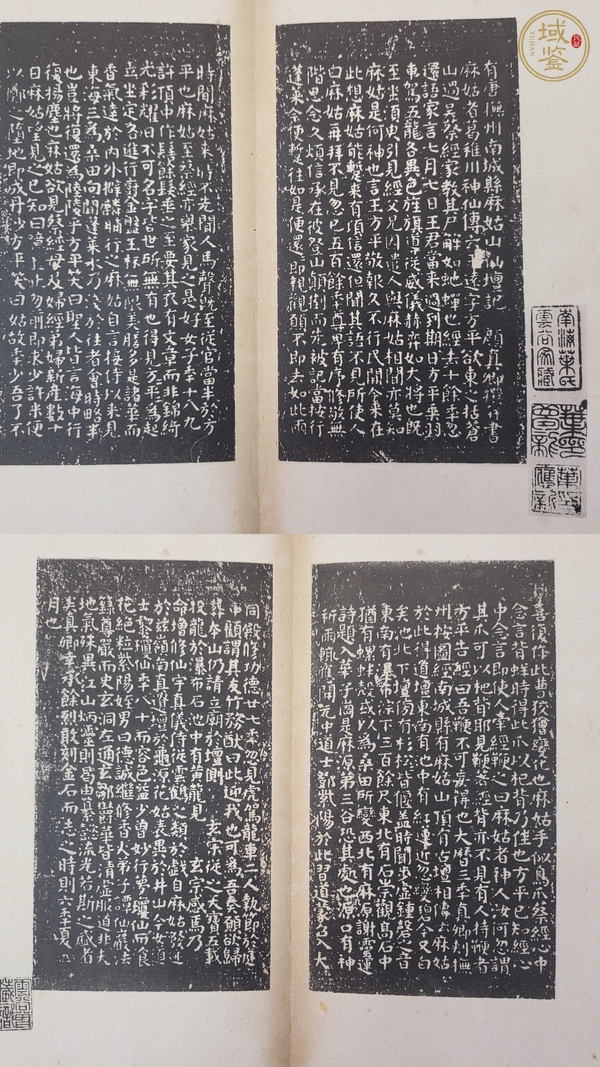 有唐撫州南城縣麻姑山仙壇記 顏真卿撰并書
麻姑者葛稚川神仙傳云王遠字方平欲東之括蒼
山過吳蔡經家教其尸解如蛇蟬也經去十餘年忽
還語家言七月七日王君當來過到期日方平乘羽
車駕五龍各異色旌旗導從威儀赫弈如大將也既
至坐須臾引見經父兄因遣人與麻姑相聞亦莫知
麻姑是何神也言王方平敬報久不行民間今來在
此想麻姑能暫來有頃信還但聞其語不見所使人
曰麻姑再拜不見忽已五百餘年尊卑有序修敬無
階思念久煩信承在彼登山顛倒而先被記當按行
蓬萊今便暫往如是便還還即親觀願不即去如此兩
時間麻姑來來時不先聞人馬聲既至從官當半於方
平也麻姑至蔡經亦舉家見之是好女子年十八九
許頂中作髻餘髮垂之至要其衣有文章而非錦綺
光彩耀日不可名字皆世所無有也得見方平方平為起
立坐定各進行廚金盤玉杯無限美膳多是諸華而
香氣達於內外擗麟脯行之麻姑自言接待以來見
東海三為桑田向間蓬萊水乃淺於往者會時略半
也豈將復還為陵陸乎方平笑曰聖人皆言海中行
復揚塵也麻姑欲見蔡經母及婦經弟婦新產數十
日麻姑望見之已知曰噫且止勿前即求少許米便
以擲之墮地即成丹沙方平笑曰姑故年少吾了不
南海葉氏
雲谷家藏
域鑒
YUJIAN
喜復作此曹狡獪變化也麻姑手似鳥爪蔡經心中
念言背痒時得此爪以杷背乃佳也方平已知經心
中念言即使人牽經鞭之曰麻姑者神人汝何忽謂
其爪可以杷背耶見鞭著經背亦不見有人持鞭者
方平告經曰吾鞭不可妄得也大曆三年真卿刺撫
州按圖經南城縣有麻姑山頂有古壇相傳云麻姑
於此得道壇東南有池中有紅蓮近忽變碧今又白
矣池北下壇傍有杉松皆偃蓋時聞步虛鍾磬之音
東南有瀑布淙下三百餘尺東北有石崇觀高石中
猶有螺蚌殼或以為桑田所變西北有麻源謝靈運
詩題入華子崗是麻源第三谷恐其處也源口有神
祈雨輒應開元中道士鄧紫陽於此習道蒙召入大
同殿修功德廿七年忽見虎駕龍車二人執節於庭
中顧謂其友竹務猷曰此迎我也可為吾奏願欲歸
葬本山仍請立廟於壇側 玄宗從之天寶五載
投龍於瀑布石池中有黃龍見 玄宗感焉乃
命增修仙宇真儀侍從雲鶴之類於戲自麻姑發迹
於茲嶺南真遺壇於龜源花姑表異於井山今女道
士黎瓊仙年八十而容色益少曾妙行夢瓊仙而餐
花絕粒紫陽姪男曰德誠繼修香火弟子譚仙巖法
籙尊嚴而史玄洞左通玄鄒鬱華皆清虛服道非夫
地氣殊異江山炳靈則曷由纂懿流光若斯之盛者
矣真卿幸承餘烈敢刻金石而志之時則六年夏四
月也